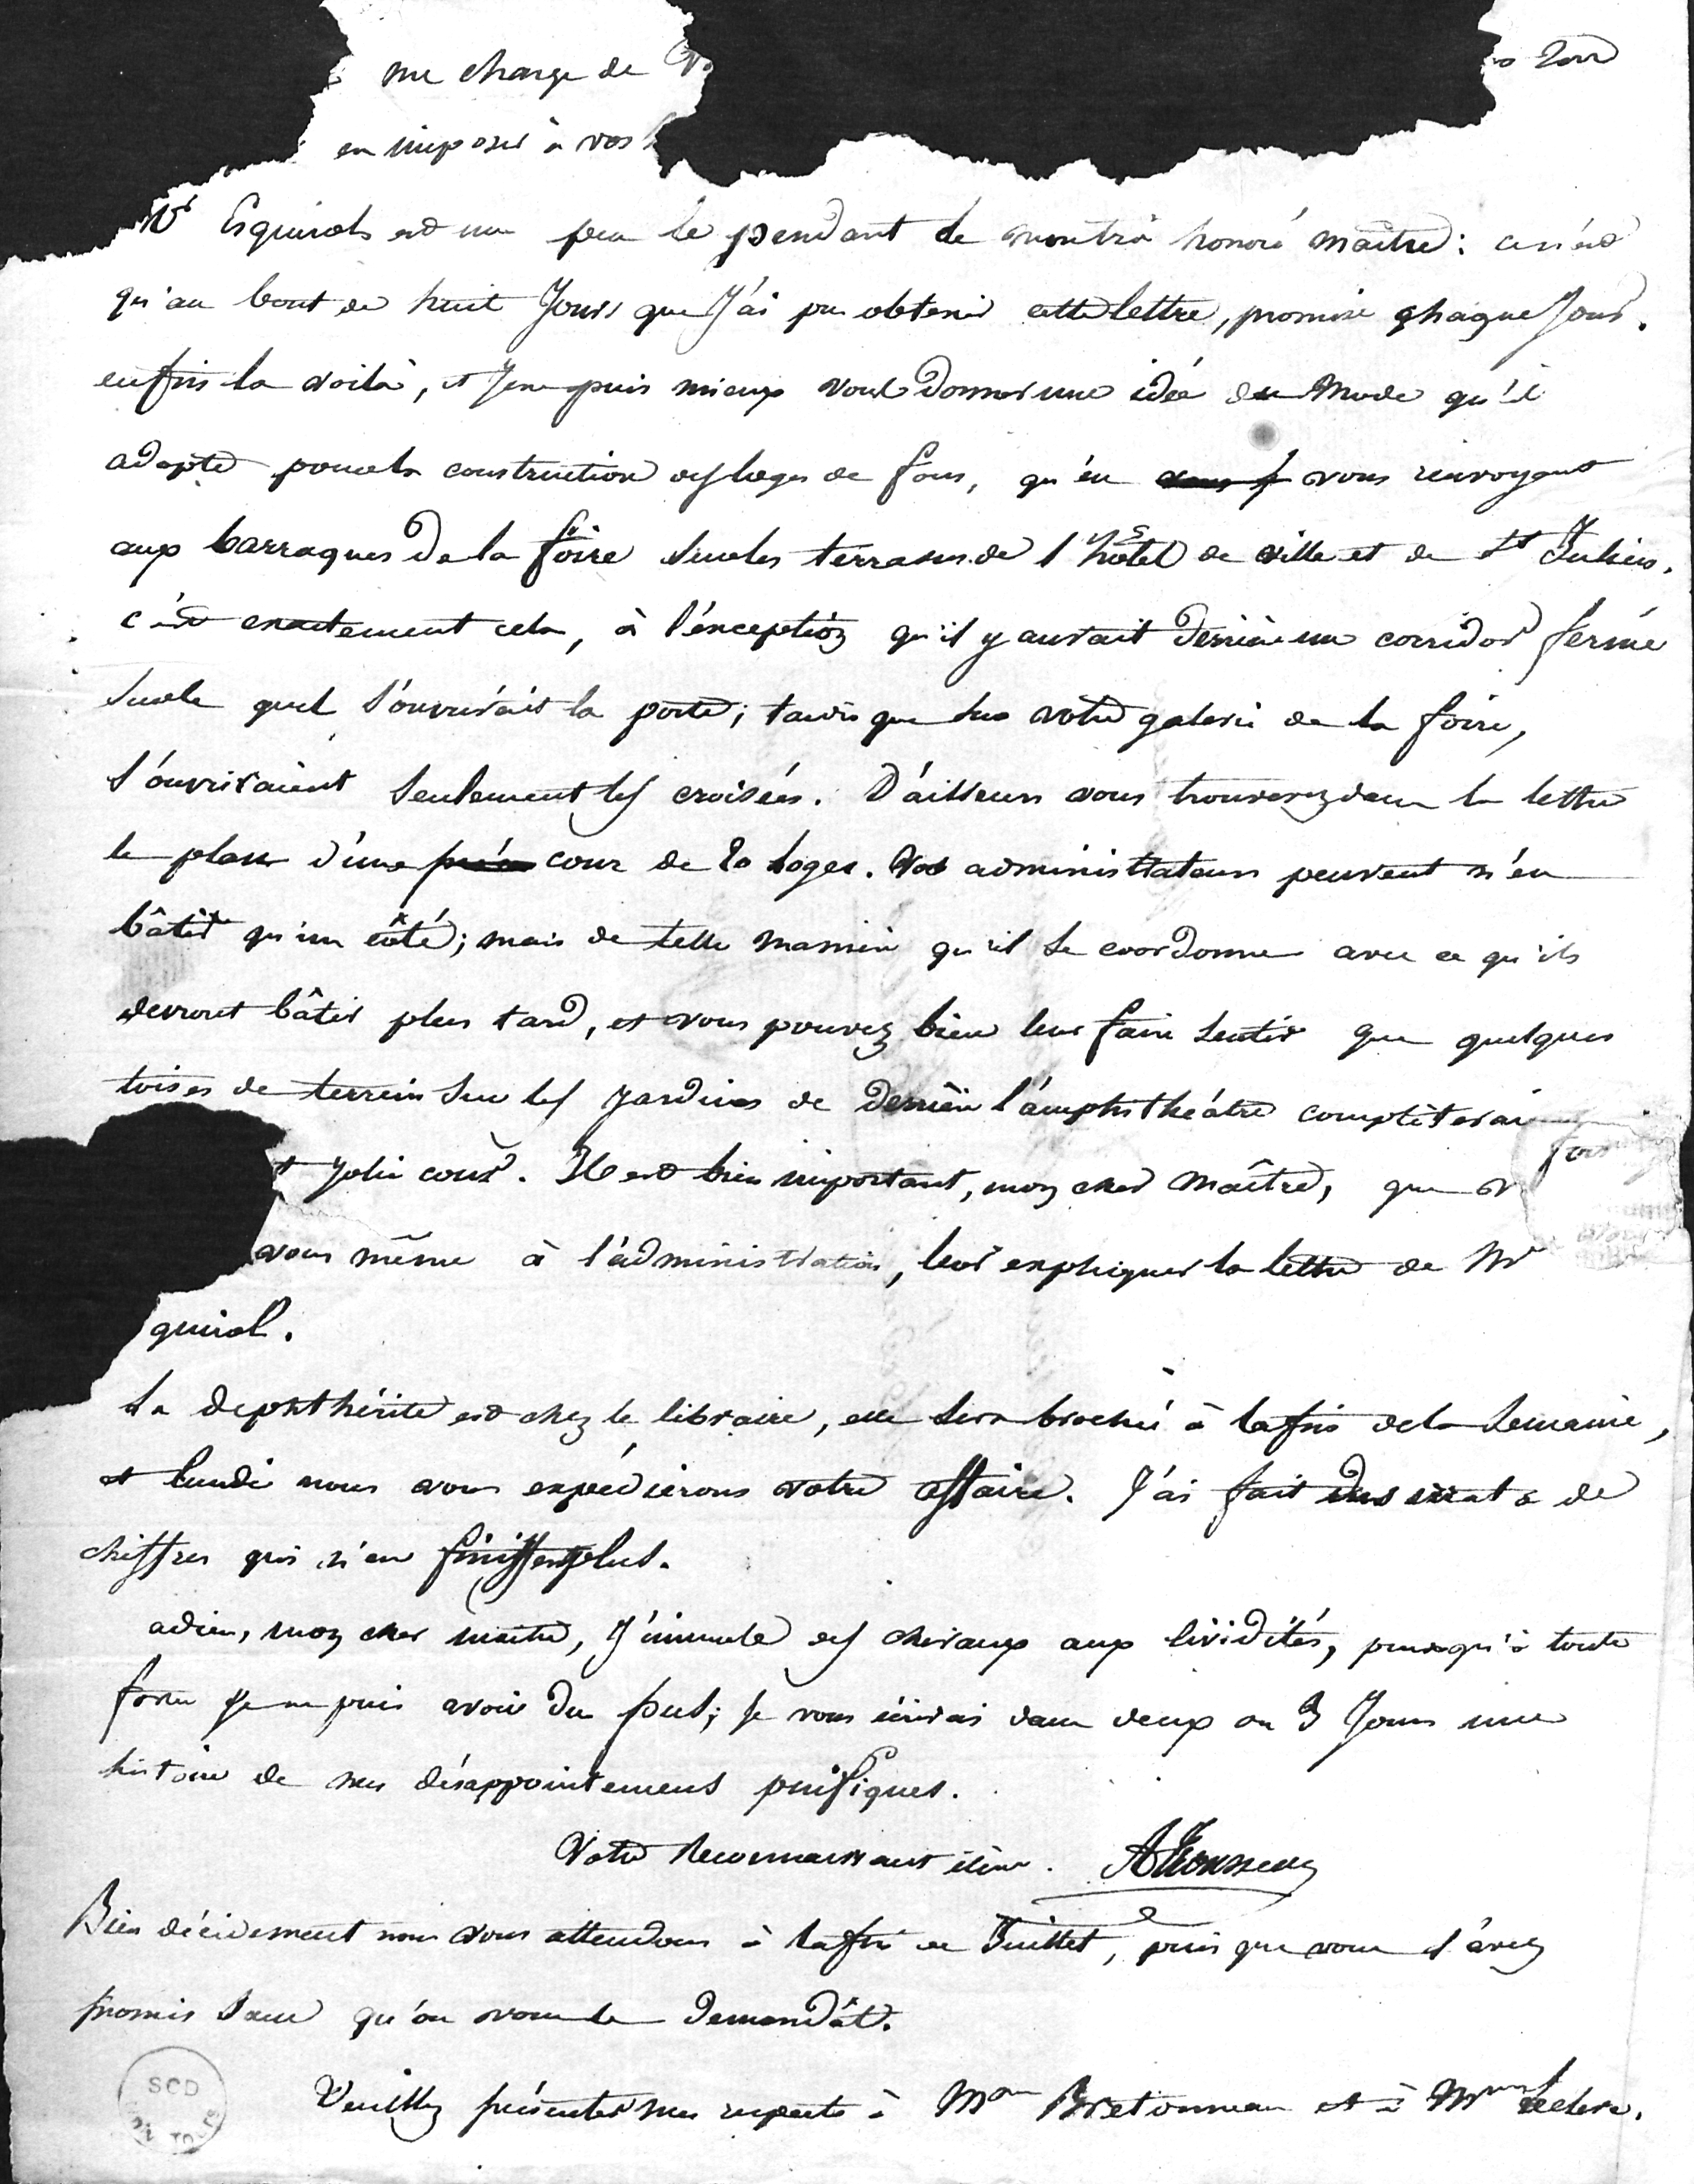 me charge de
en imposer à vos
Mr Esquirols est un peu le pendant de mon très honoré maître: ce n'est
qu'au bout de huit Jours que J'ai pu obtenir cette lettre, promise chaque Jour.
enfin la voilà, et Je ne puis mieux vous donner une idée du mode qu'il
adopte pour la construction des loges de fous, qu'en vous renvoyant
aux barraques de la foire sur les terrasses de l'hôtel de ville et de St Julien.
c'est exactement cela, à l'exception qu'il y aurait derrière un corridor fermé
sur le quel s'ouvrirait la porte; tandis que sur votre galerie de la foire,
s'ouvriraient seulement les croisées. D'ailleurs vous trouverez dans la lettre
le plan d'une cour de 20 loges. Vos administrateurs peuvent n'en
bâtir qu'un côté; mais de telle manière qu'il se coordonne avec ce qu'ils
devront bâtir plus tard, et vous pouvez bien leur faire sentir que quelques
toises de terrein sur les Jardins de derrière l'amphithéâtre complèterai
Jolie cour. Il est bien important, mon cher maître, que
vous même à l'administration, leur expliquer la lettre de Mr
quirol.
La dephthérite est chez le libraire, elle sera brochée à la fin de la semaine,
et lundi nous vous expédierons votre affaire. J'ai fait des errata de
chiffres qui n'en finissent plus.
adieu, mon cher maître, J'immole des chevaux aux lividités, puisqu'à toute
force Je ne puis avoir du pus; Je vous écrirai dans deux ou 3 Jours une
histoire de mes désappointements puifiques.
Votre reconnaissant élève. ATrousseau
Bien décidement nous vous attendons à la fin de Juillet, puis que vous l'avez
promis sans qu'on vous le demandât.
Veuillez présenter mes respects à Me Bretonneau et à Mme Leclerc.
SCD
TOURS